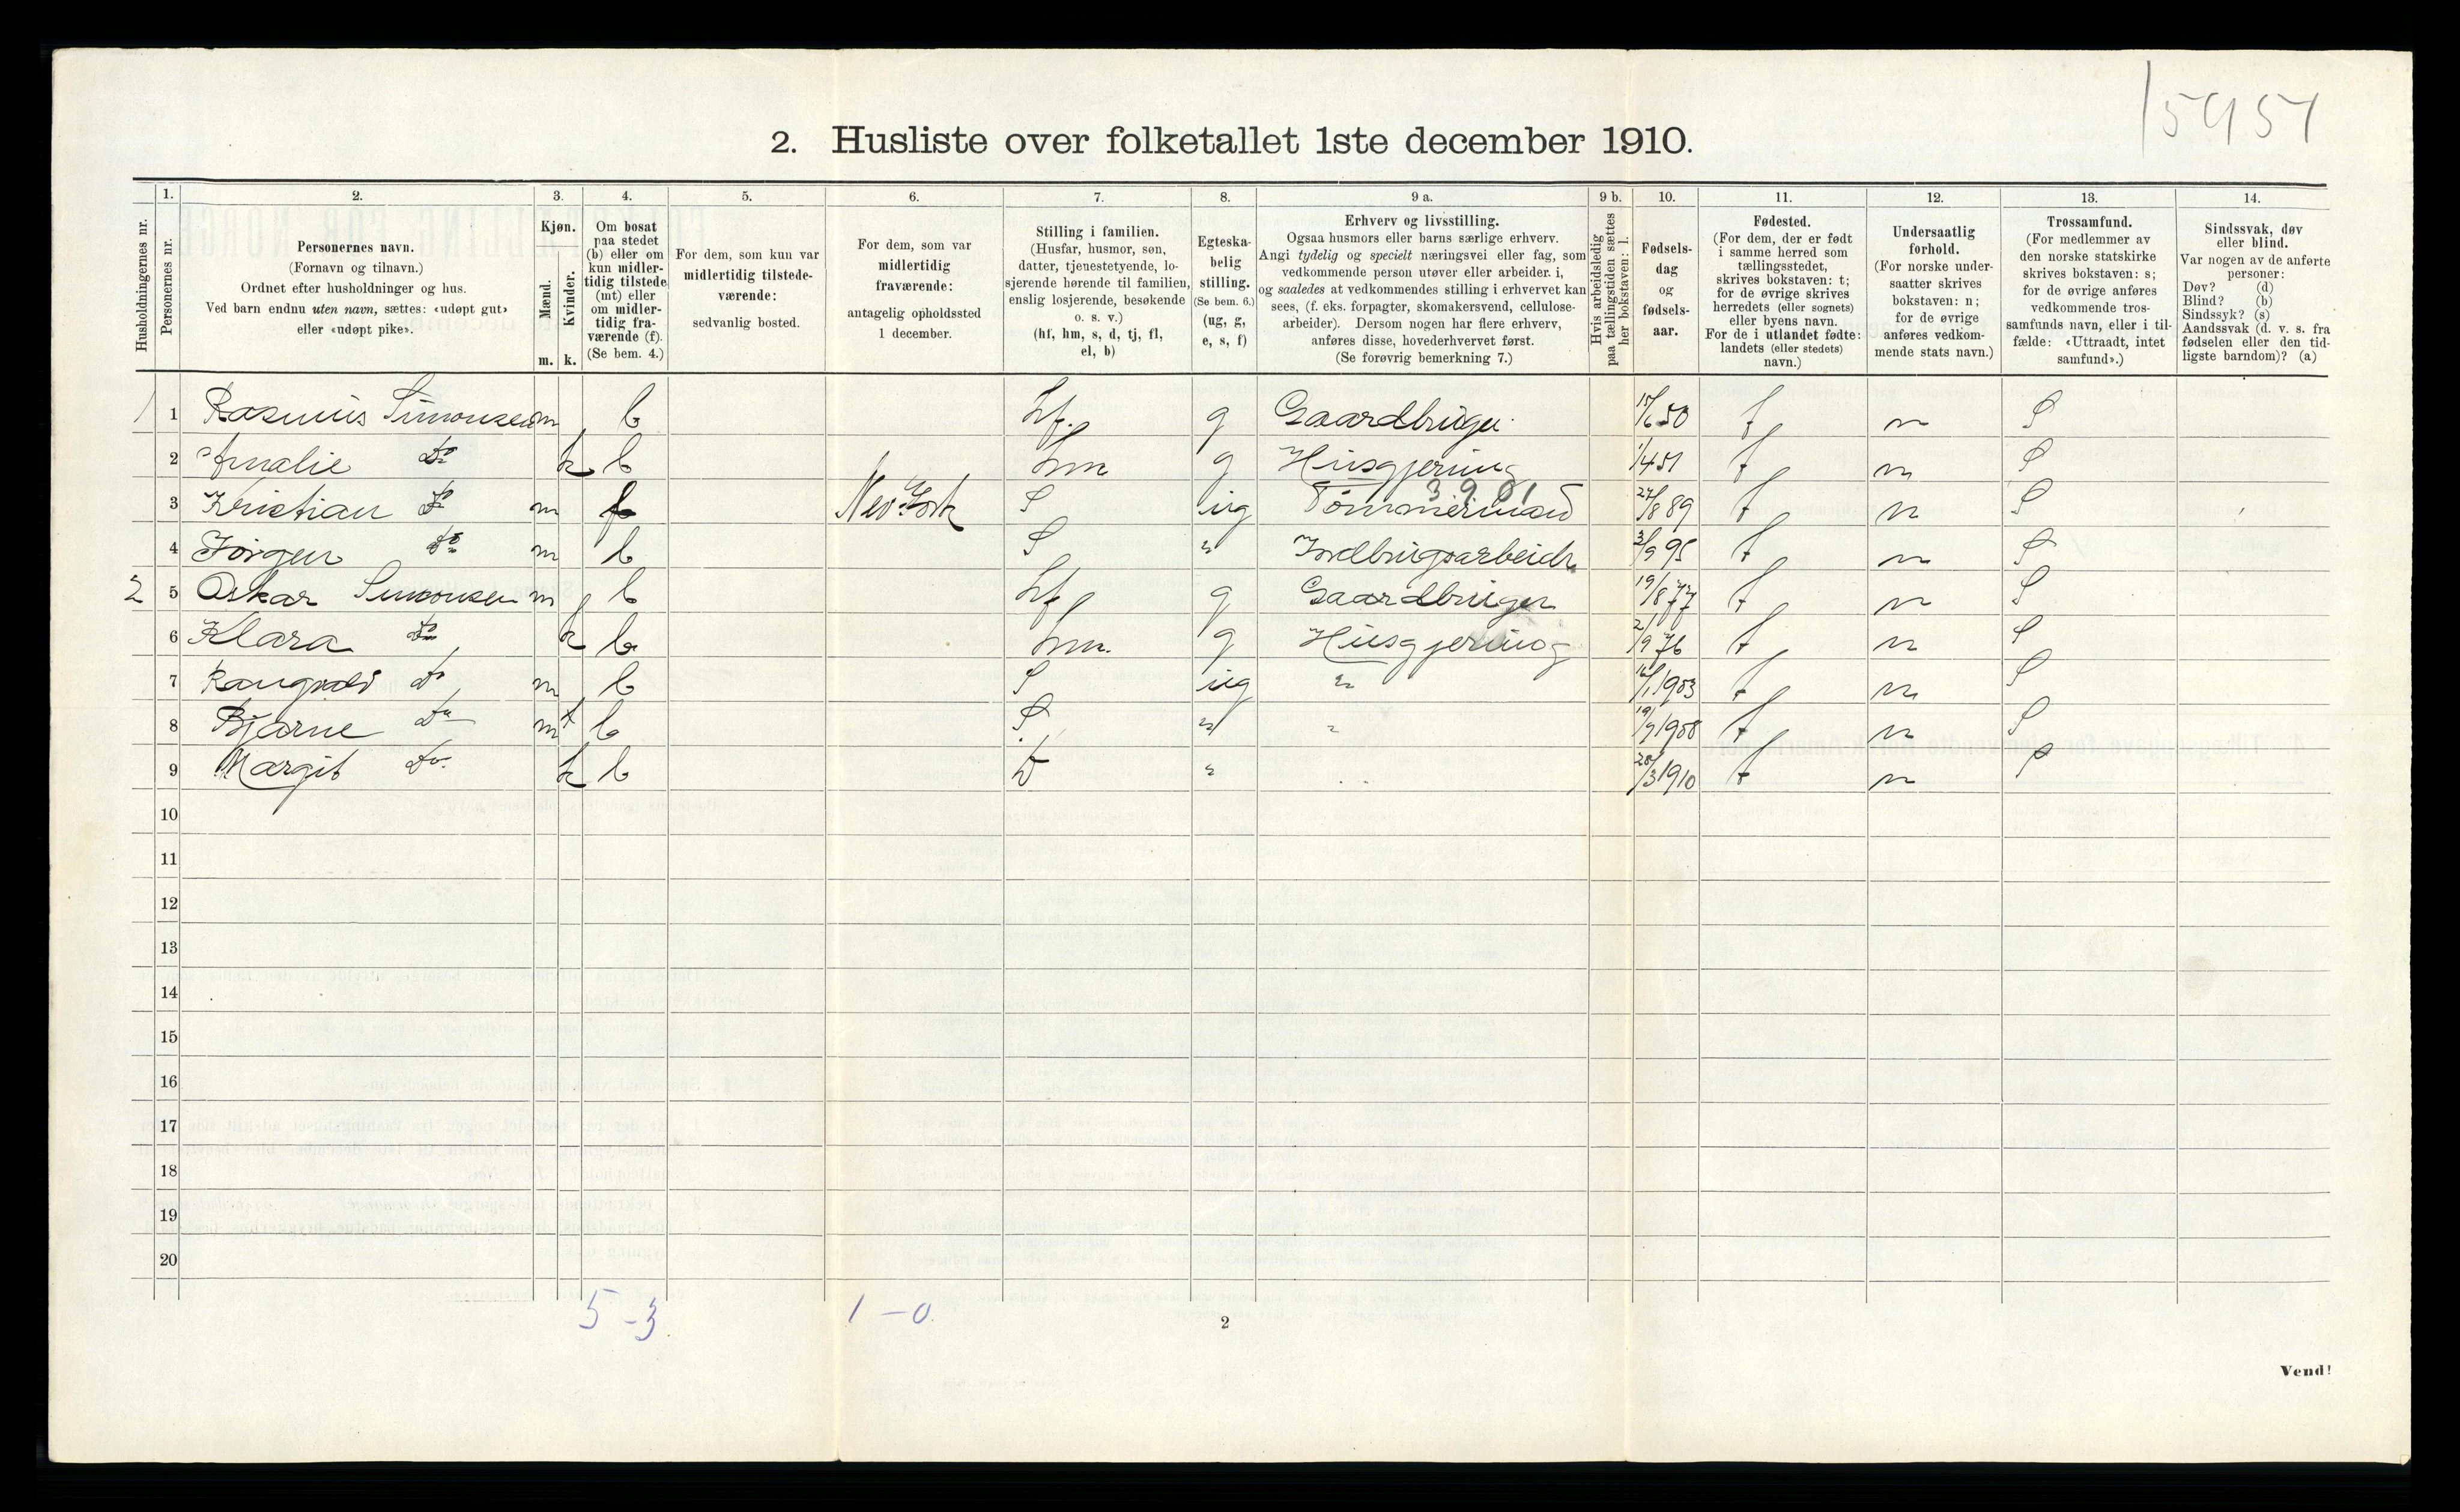 15951
2. Husliste over folketallet 1ste december 1910.
1. 2. 3. 4. 5. 6. 7. 8. 9 a. 9 b. 10. 11. 12. 13. 14.
Husholdningernes nr.
Personernes nr.
Personernes navn.
(Fornavn og tilnavn.)
Ordnet efter husholdninger og hus.
Ved barn endnu uten navn, sættes: «udøpt gut»
eller «udøpt pike».
Kjøn.
Mænd.
Kvinder.
m. k.
Om bosat
paa stedet
(b) eller om
kun midler-
tidig tilstede
(mt) eller
om midler-
tidig fra-
værende (f).
(Se bem. 4.)
For dem, som kun var
midlertidig tilstede-
værende:
sedvanlig bosted.
For dem, som var
midlertidig
fraværende:
antagelig opholdssted
1 december.
Stilling i familien.
(Husfar, husmor, søn,
datter, tjenestetyende, lo-
sjerende hørende til familien,
enslig losjerende, besøkende
o. s. v.)
(hf, hm, s, d, tj, fl,
el, b)
Egteska-
belig
stilling.
(Se bem. 6.)
(ug, g,
e, s, f)
Erhverv og livsstilling.
Ogsaa husmors eller barns særlige erhverv.
Angi tydelig og specielt næringsvei eller fag, som
vedkommende person utøver eller arbeider. i,
og saaledes at vedkommendes stilling i erhvervet kan
sees, (f. eks. forpagter, skomakersvend, cellulose-
arbeider). Dersom nogen har flere erhverv,
anføres disse, hovederhvervet først.
(Se forøvrig bemerkning 7.)
Hvis arbeidsledig
paa tællingstiden sættes
her bokstaven: l.
Fødsels-
dag
og
fødsels-
aar.
Fødested.
(For dem, der er født
i samme herred som
tællingsstedet,
skrives bokstaven: t;
for de øvrige skrives
herredets (eller sognets)
eller byens navn.
For de i utlandet fødte:
landets (eller stedets)
navn.)
Undersaatlig
forhold.
(For norske under-
saatter skrives
bokstaven: n;
for de øvrige
anføres vedkom-
mende stats navn.)
Trossamfund.
(For medlemmer av
den norske statskirke
skrives bokstaven: s;
for de øvrige anføres
vedkommende tros-
samfunds navn, eller i til-
fælde: «Uttraadt, intet
samfund».)
Sindssvak, døv
eller blind.
Var nogen av de anførte
personer:
Døv? (d)
Blind? (b)
Sindssyk? (s)
Aandssvak (d. v. s. fra
fødselen eller den tid-
ligste barndom)? (a)
1 1 Rasmus Simonsen m b hf. g Gaardbruger 15/6 50 t n S
2 Amalie Do k b hm g Husgjerning 1/4 51 t n S
3 Kristian Do m f New York S ug 3901 Tømmermand 27/8 89 t n S
4 Jørgen Do m b S " Jordbrugsarbeider 3/9 95 t n S
2 5 Oskar Simonsen m b hf g Gaardbruger 19/8 77 t n S
6 Klara Do k b hm. g Husgjerning 2/9 76 t n S
7 Rangvald Do m b S ug " 16/1 1903 t n S
8 Bjarne Do m t b S " " 19/9 1908 t n S
9 Margit Do k b D " 28/3 1910 t n S
10
11
12
13
14
15
16
17
18
19
20
5 - 3. 1 - 0.
2
Vend!